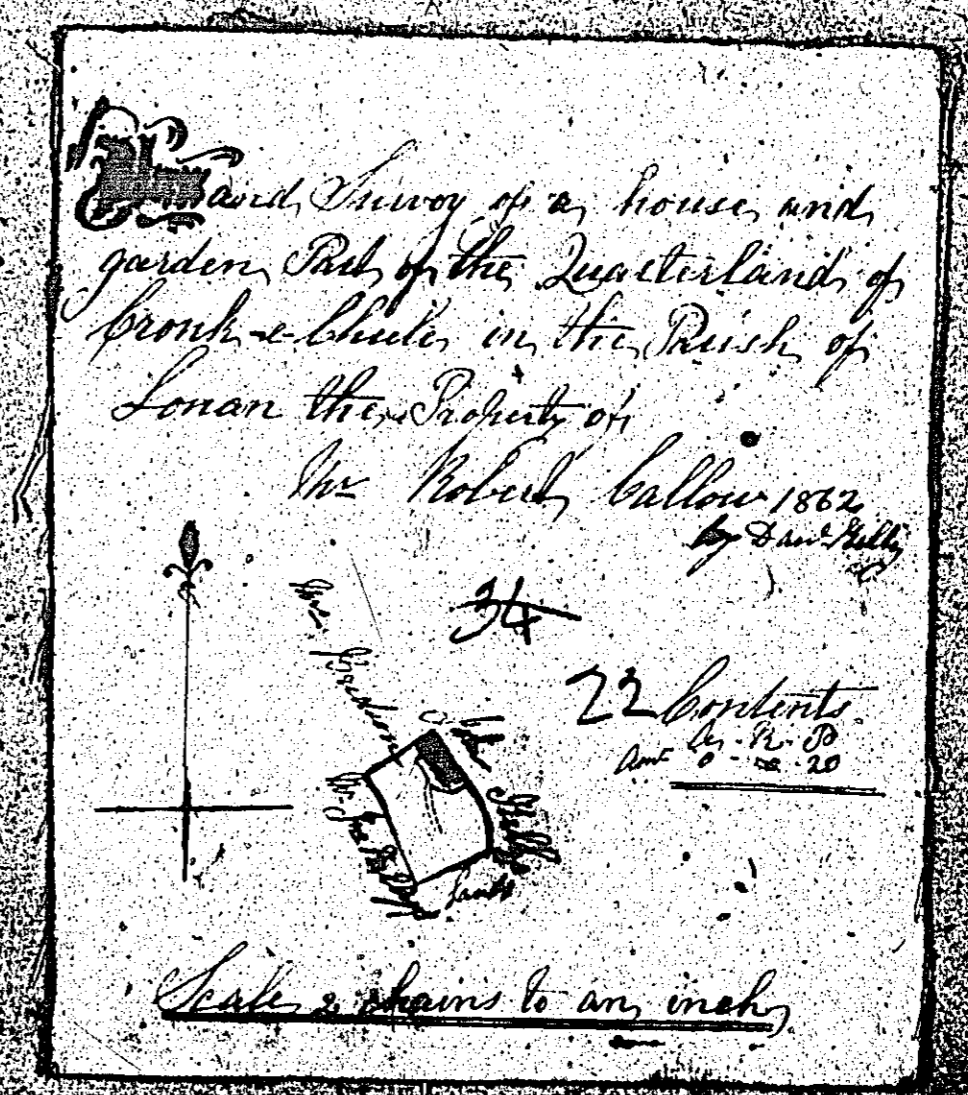 Plan and Survey of a house and
garden Part of the Quarterland of
Cronk-e-Chule in the Parish of
Lonan the Property of
Mr Robert Callow 1862
by Danl Kelly
34
22 Contents
A. R. P.
Amt 0 - 0 - 20
John
Kelly
Lands
Scale 2 chains to an inch